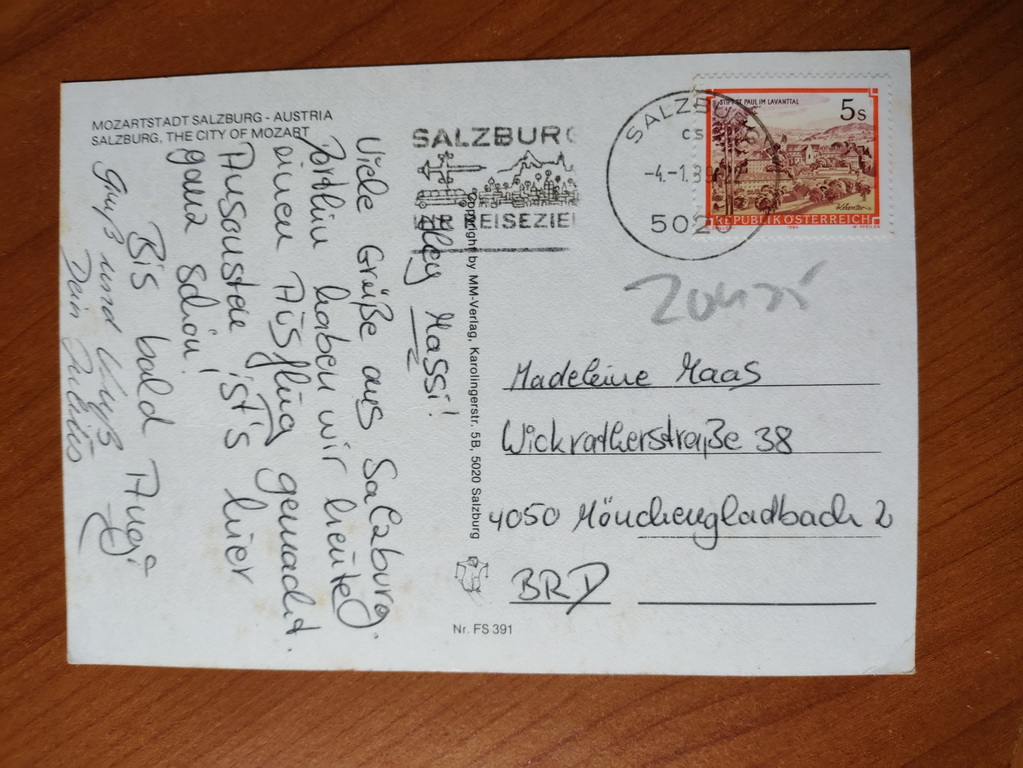 MOZARTSTADT SALZBURG - AUSTRIA
SALZBURG, THE CITY OF MOZART
Hey Massi!
Viele Grüße aus Salzburg.
Dorthin haben wir heute
einen Ausflug gemacht.
Ansonsten ist's hier
ganz schön!
Bis bald
Gruß und Kuß
Dein Julius
Copyright by MM-Verlag, Karolingerstr. 5B, 5020 Salzburg
Nr. FS 391
SALZBURG
REISEZIEL
SALZBURG
-4.-1.89
502
STIFT ST. PAUL IM LAVANTTAL
5s
REPUBLIK ÖSTERREICH
Madeleine Maas
Wickratherstraße 38
4050 Mönchengladbach 2
BRD